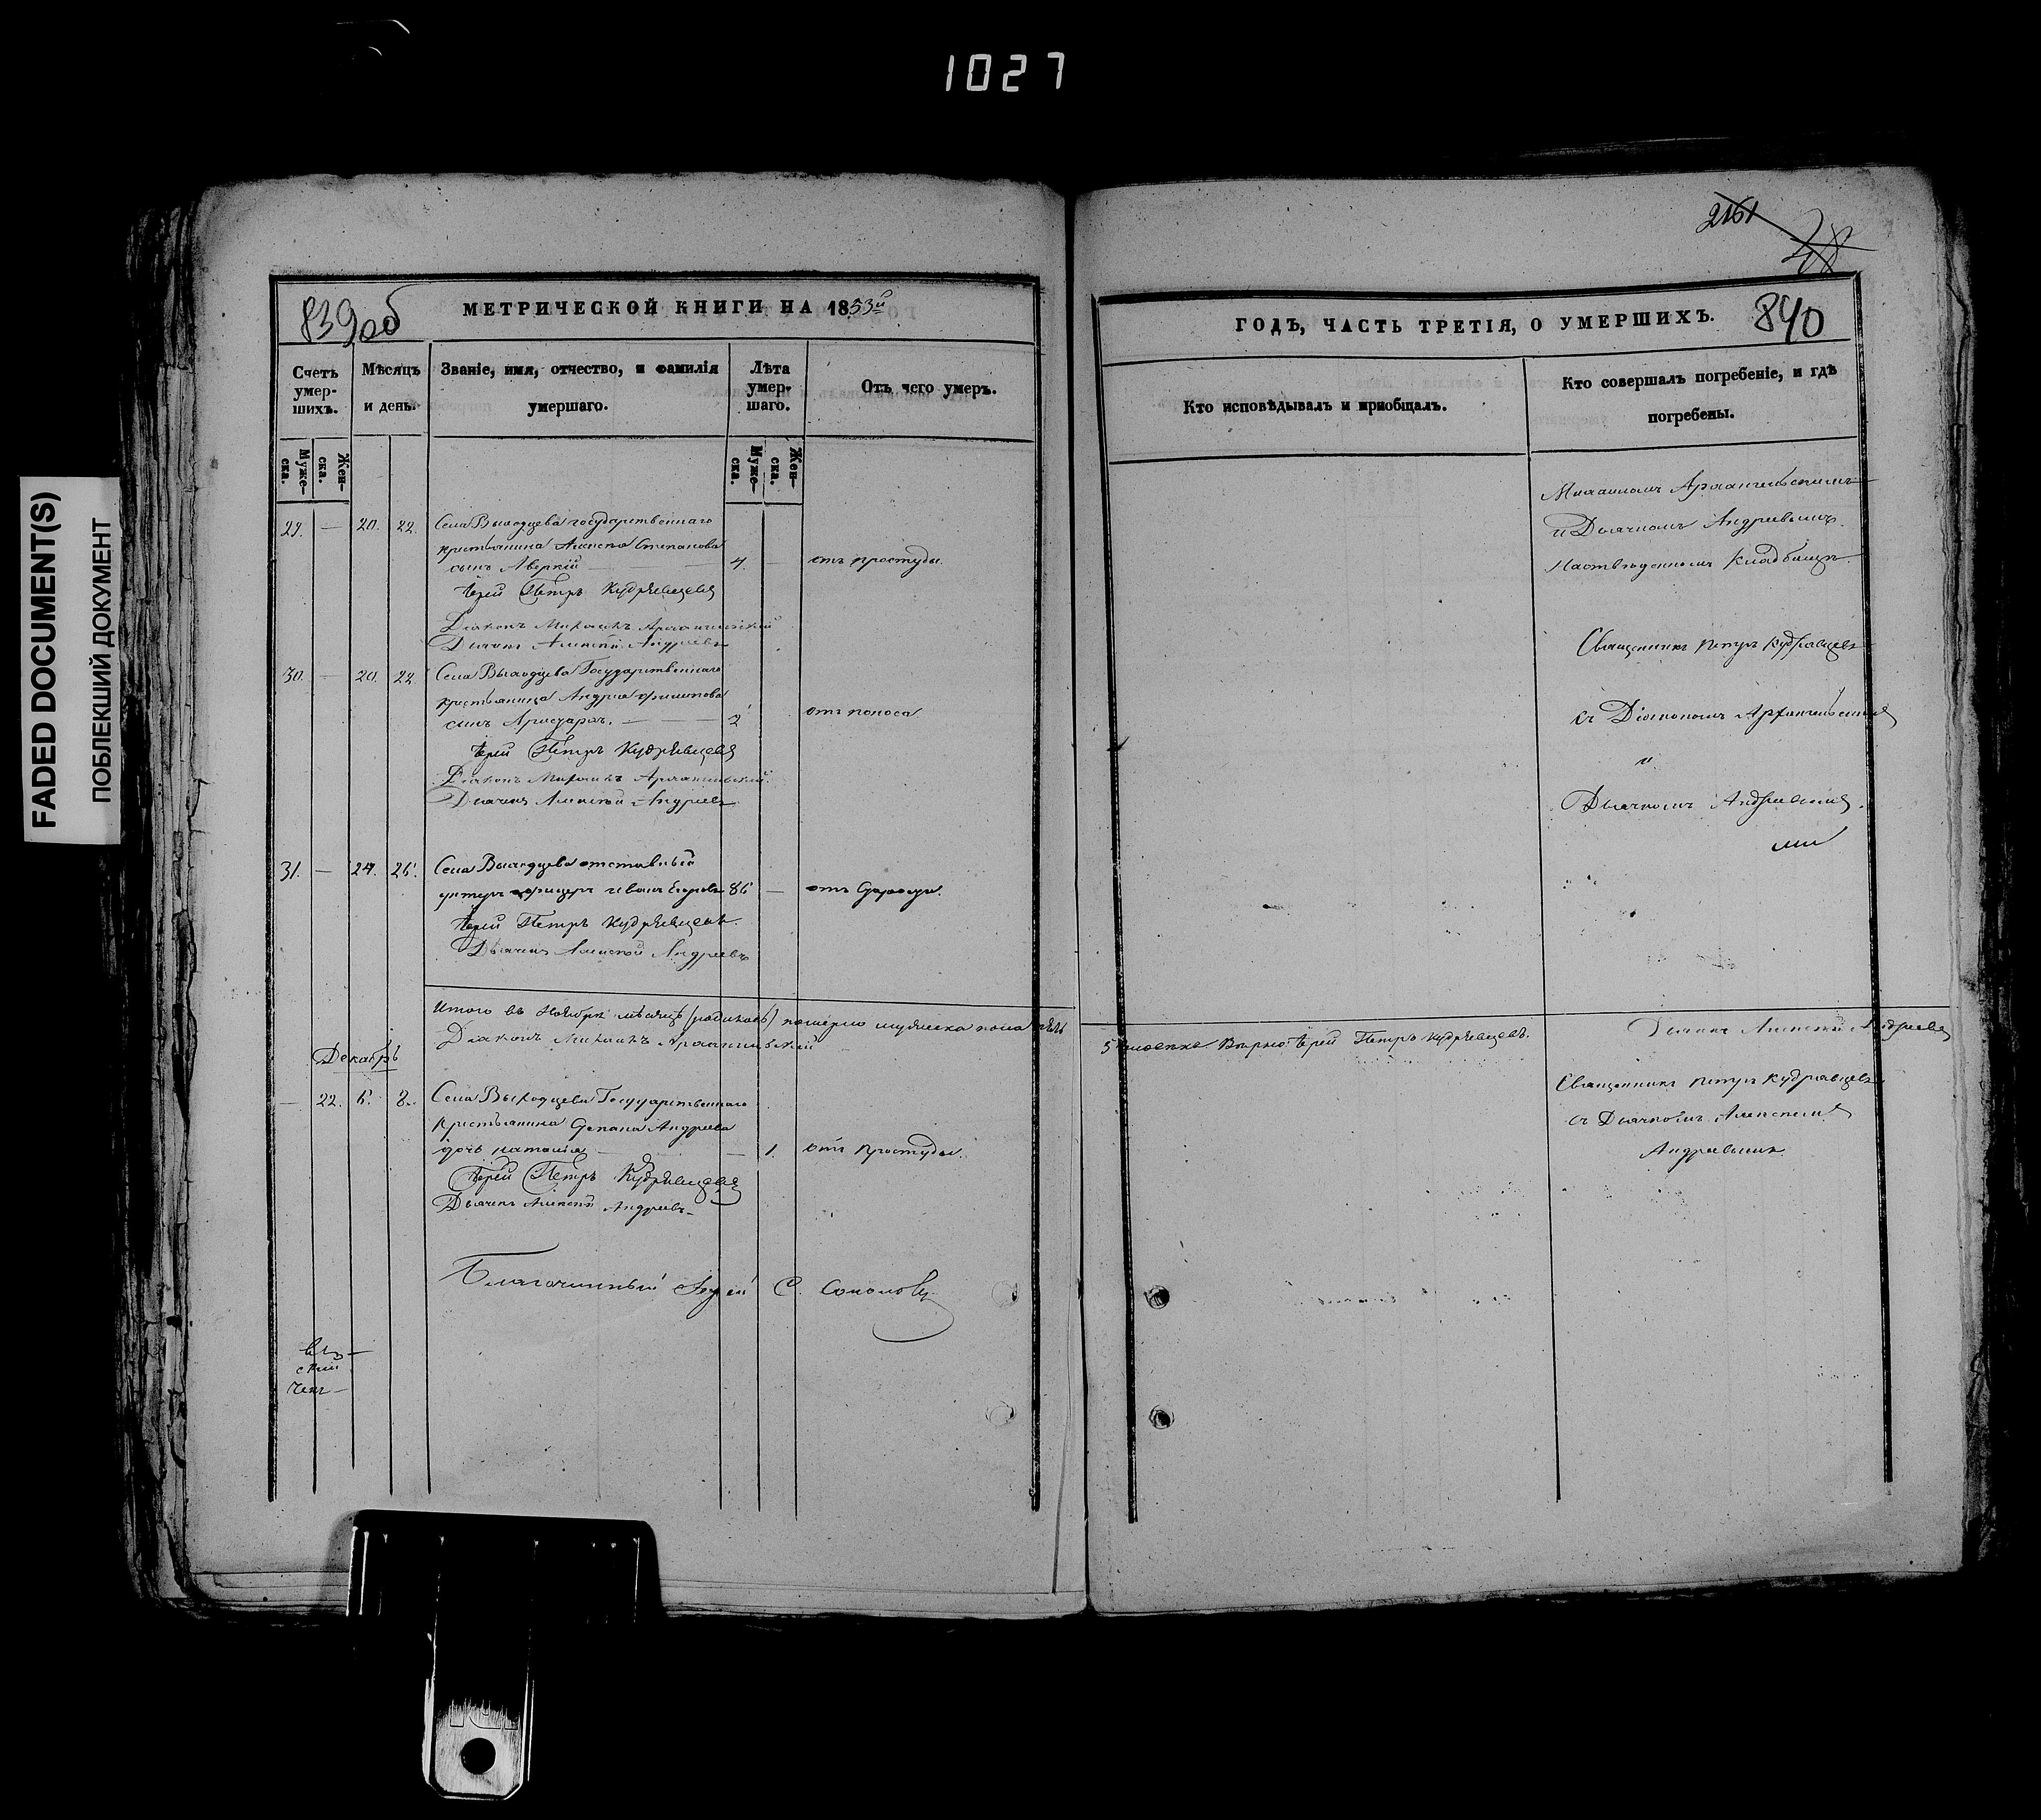 1027
FADED DOCUMENT(S)
ПОБЛЕКШИЙ ДОКУМЕНТ
839об
МЕТРИЧЕСКОЙ КНИГИ НА 1853й
Счетъ умер-
шихъ.
Мѣсяцъ
и день.
Званіе, имя, отчество, и фамилія
умершаго.
Лѣта
умер-
шаго.
Отъ чего умеръ.
Муже-
ска.
Жен-
ска.
Муже-
ска.
Жен-
ска.
29. — 20. 22. Села Выходцева государственнаго
крестьянина Алексѣя Степанова
сынъ Аверкій — 4. — отъ простуды.
Іерей Петръ Кудрявцевъ
Діаконъ Михаилъ Архангельскій
Дьячекъ Алексѣй Андреевъ
30. — 20. 22. Села Выходцева Государственнаго
крестьянина Андрея Филипова
сынъ Аристархъ. — 2 отъ поноса
Іерей Петръ Кудрявцевъ
Діаконъ Михаилъ Архангельскій
Дьячекъ Алексѣй Андреевъ
31. — 24. 26. Села Выходцева отставный
унтеръ офицеръ Иванъ Егоровъ 86 — отъ
Іерей Петръ Кудрявцевъ.
Дьячекъ Алексѣй Андреевъ
Итого въ Ноябрѣ мѣсяцѣ померло мужеска пола
Діаконъ Михаилъ Архангельскій
Декабрь
— 22. 6. 8. Села Выходцева Государственнаго
крестьянина Степана Андреева
дочь Наталія — 1. отъ простуды.
Іерей Петръ Кудрявцевъ
Дьячекъ Алексѣй Андреевъ
Благочинный Іерей С. Соколовъ
скій
чекъ
2161
840
ГОДЪ, ЧАСТЬ ТРЕТІЯ, О УМЕРШИХЪ.
Кто исповѣдывалъ и пріобщалъ.
Кто совершалъ погребеніе, и гдѣ
погребены.
Михаиломъ Архангельскимъ
и Дьячкомъ Андреевымъ.
Кладбищѣ.
Священникъ Петръ Кудрявцевъ
съ Діакономъ Архангельскимъ
и
Дьячкомъ Андреевымъ.
5 человѣкъ. Вѣрно: Іерей Петръ Кудрявцевъ.
Дьячекъ Алексѣй Андреевъ
Священникъ Петръ Кудрявцевъ
съ Дьячкомъ Алексѣемъ
Андреевымъ